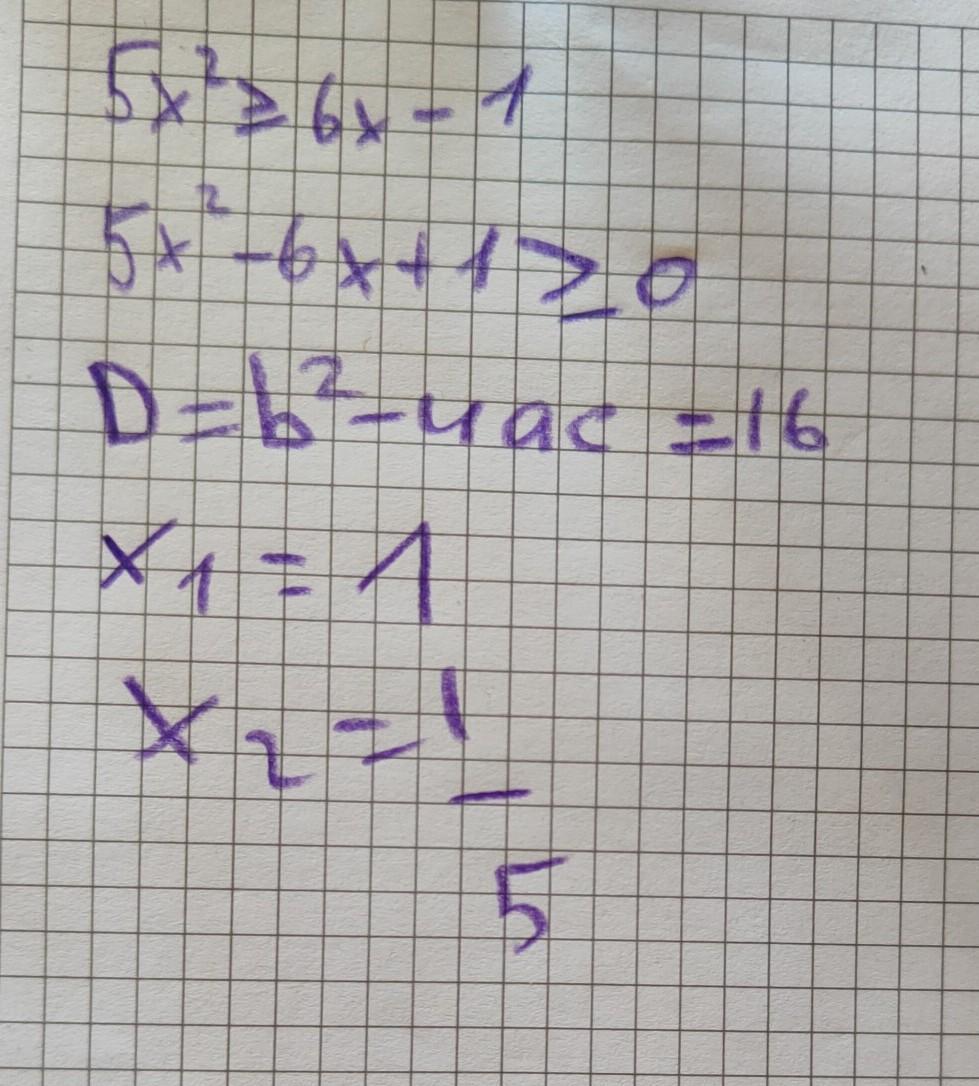 5x² ≥ 6x - 1
5x² - 6x + 1 ≥ 0
D = b² - 4ac = 16
x₁ = 1
x₂ = 1/5